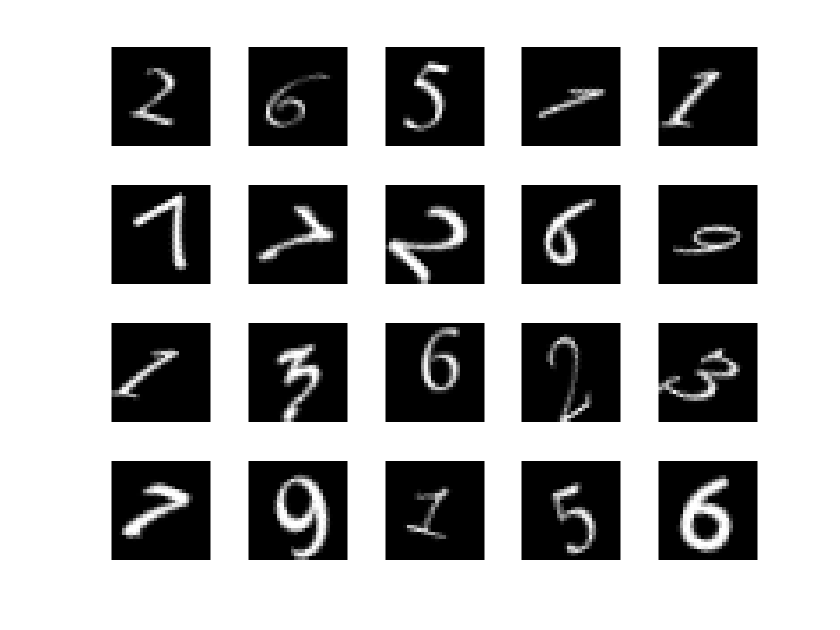 2 6 5 7 1
7 7 2 6 9
1 3 6 2 3
7 9 1 5 6